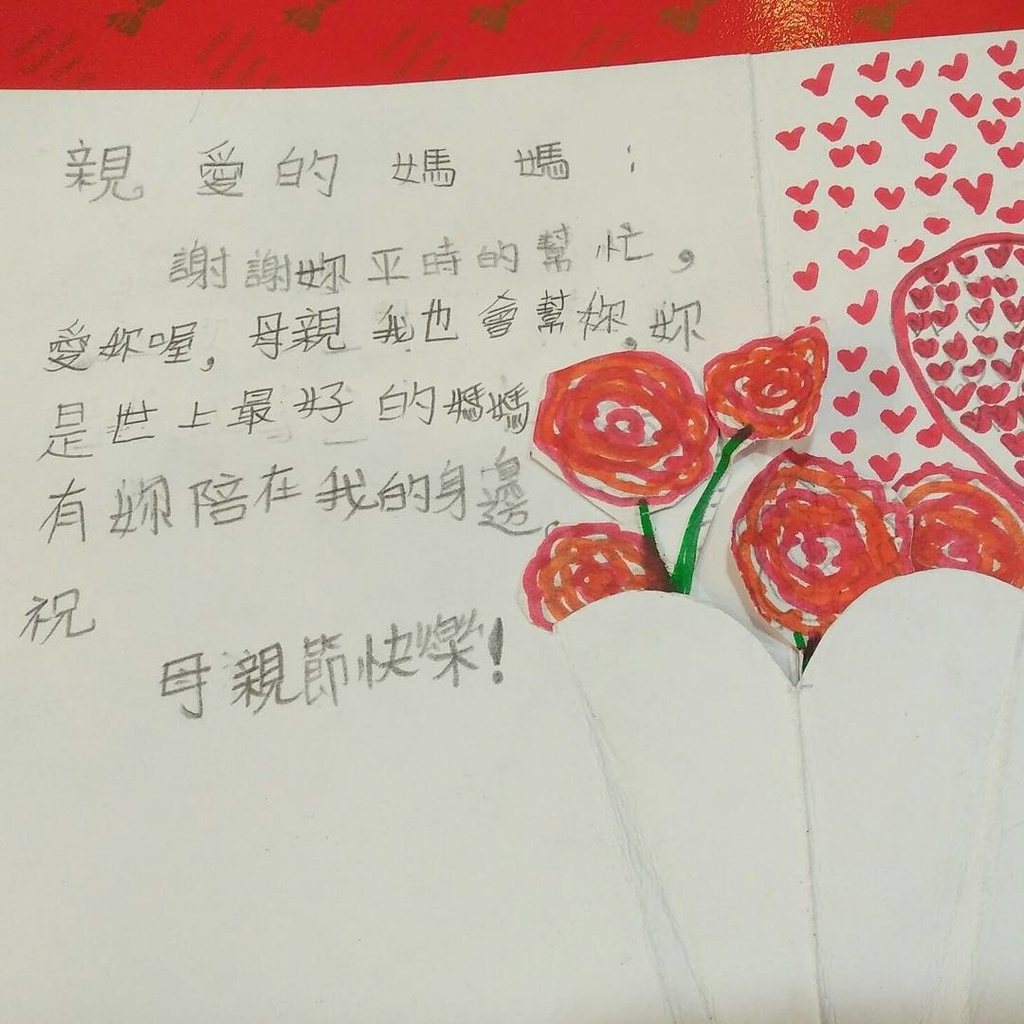 親愛的媽媽：
謝謝妳平時的幫忙，
愛妳喔，母親我也會幫妳，妳
是世上最好的媽媽
有妳陪在我的身邊。
祝
母親節快樂！